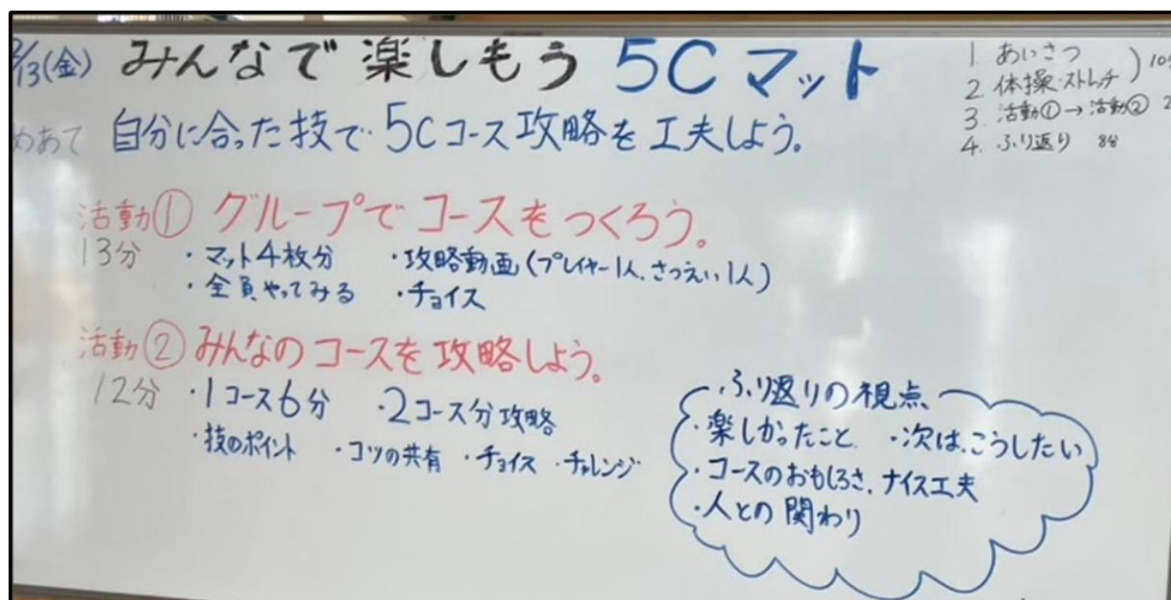 /13(金) みんなで楽しもう 5Cマット
めあて 自分に合った技で 5Cコース攻略を工夫しよう。
1. あいさつ
2. 体操・ストレッチ
3. 活動①→活動②
4. ふり返り 8分
活動① グループでコースをつくろう。
13分 ・マット4枚分 ・攻略動画(プレイヤー1人、さつえい1人)
・全員やってみる ・チョイス
活動② みんなのコースを攻略しよう。
12分 ・1コース6分 ・2コース分攻略
・技のポイント ・コツの共有 ・チョイス ・チャレンジ
ふり返りの視点
・楽しかったこと ・次は、こうしたい
・コースのおもしろさ、ナイス工夫
・人との関わり